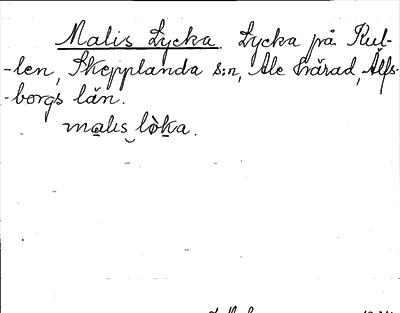 Malis Lycka. Lycka på Kul-
-len, Skepplanda s:n, Ale härad, Älfs-
-borgs län.
malis lòka.